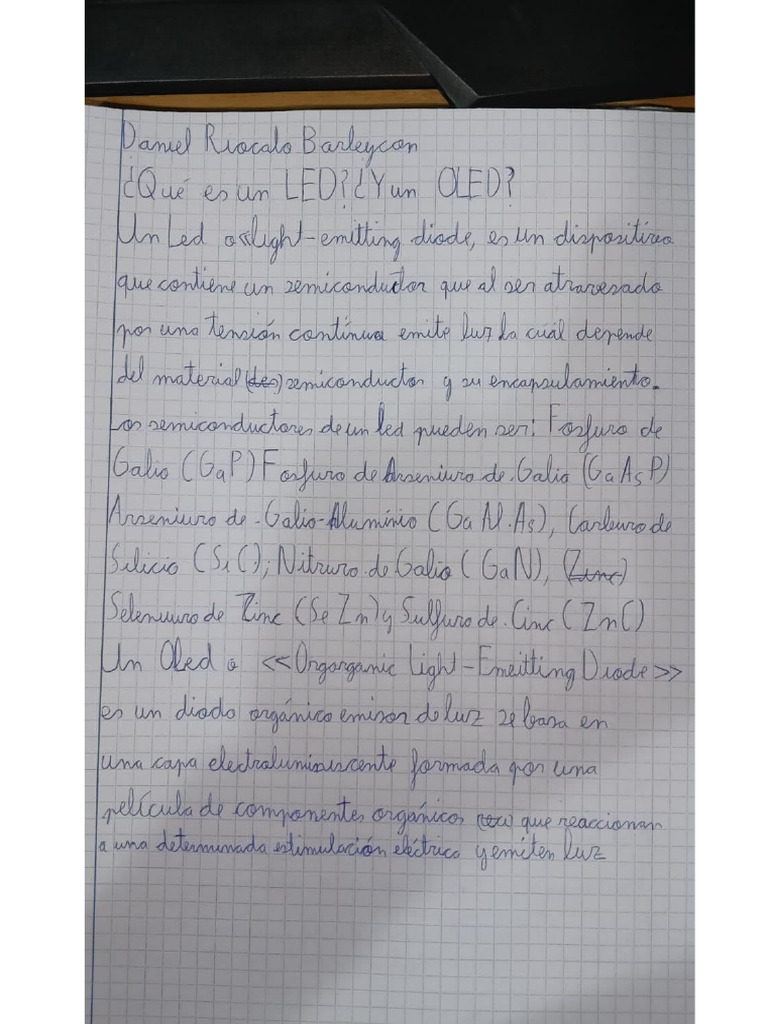 Daniel Riocalo Barleycon
¿Qué es un LED? ¿Y un OLED?
Un Led o «light-emitting diode, es un dispositivo
que contiene un semiconductor que al ser atravesado
por una tensión contínua emite luz la cuál depende
del material (des) semiconductor y su encapsulamiento.
Los semiconductores de un led pueden ser: Fosfuro de
Galio (GaP) Fosfuro de Arseniuro de Galio (GaAsP)
Arseniuro de Galio-Aluminio (GaAl.As), Carburo de
Silicio (SiC); Nitruro de Galio (GaN), (Zinc)
Seleniuro de Zinc (SeZn) y Sulfuro de Cinc (ZnC)
Un Oled o <<Orgorganic Light-Emeitting Diode>>
es un diodo orgánico emisor de luz se basa en
una capa electroluminiscente formada por una
película de componentes orgánicos que reaccionan
a una determinada estimulación eléctrica y emiten luz